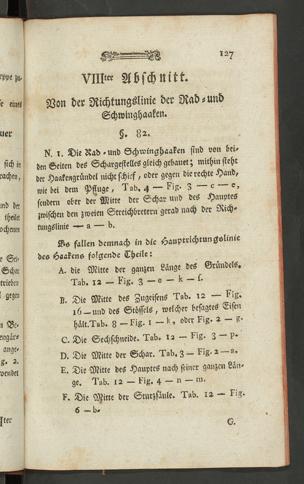 127
VIIIter Abschnitt.
Von der Richtungslinie der Rad- und
Schwinghaaken.
§. 82.
N. 1. Die Rad- und Schwinghaaken sind von bei-
den Seiten des Schargestelles gleich gebauet; mithin steht
der Haakengründel nicht schief, oder gegen die rechte Hand,
wie bei dem Pfluge, Tab. 4 — Fig. 3 — c — e,
sondern ober der Mitte der Schar und des Hauptes
zwischen den zweien Streichbrettern gerad nach der Rich-
tungslinie — a — b.
Es fallen demnach in die Hauptrichtungslinie
des Haakens folgende Theile:
A. die Mitte der ganzen Länge des Gründels.
Tab. 12 — Fig. 3 — e — k — f.
B. Die Mitte des Zugeisens Tab. 12 — Fig.
16 — und des Stössels, welcher besagtes Eisen
hält. Tab. 8 — Fig. 1 — k, oder Fig. 2 — g.
C. Die Sechschneide. Tab. 12 — Fig. 3 — p.
D. Die Mitte der Schar. Tab. 3 — Fig. 2 — a.
E. Die Mitte des Hauptes nach seiner ganzen Län-
ge. Tab. 12 — Fig. 4 — n — m.
F. Die Mitte der Sturzsäule. Tab. 12 — Fig.
6 — b.
G.